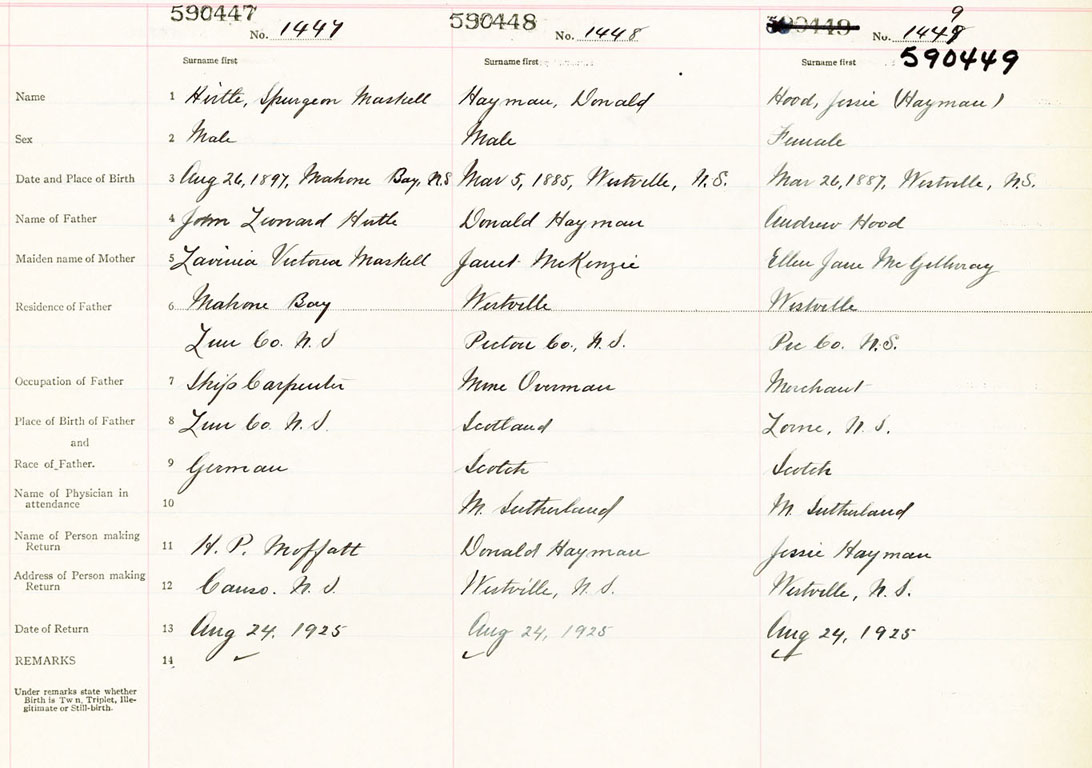 590447 590448 590449 9
No. 1447 No. 1448 No. 1449
590449
Surname first Surname first Surname first
Name 1 Hirtle, Spurgeon Maskell Hayman, Donald Hood, Jessie (Hayman)
Sex 2 Male Male Female
Date and Place of Birth 3 Aug 26, 1897, Mahone Bay, N.S Mar 5, 1885, Westville, N.S. Mar 26, 1887, Westville, N.S.
Name of Father 4 John Leonard Hirtle Donald Hayman Andrew Hood
Maiden name of Mother 5 Lavinia Victoria Maskell Janet McKenzie Ellen Jane McGillvray
Residence of Father 6 Mahone Bay Westville Westville
Lun Co. N.S Pictou Co., N.S. Pic Co. N.S.
Occupation of Father 7 Ship Carpenter Mine Overman Merchant
Place of Birth of Father 8 Lun Co. N.S. Scotland Lorne, N.S.
and
Race of Father. 9 German Scotch Scotch
Name of Physician in
attendance 10 M. Sutherland M. Sutherland
Name of Person making
Return 11 H. P. Moffatt Donald Hayman Jessie Hayman
Address of Person making
Return 12 Canso. N.S. Westville, N.S. Westville, N.S.
Date of Return 13 Aug 24, 1925 Aug 24, 1925 Aug 24, 1925
REMARKS 14
Under remarks state whether
Birth is Tw n, Triplet, Ille-
gitimate or Still-birth.